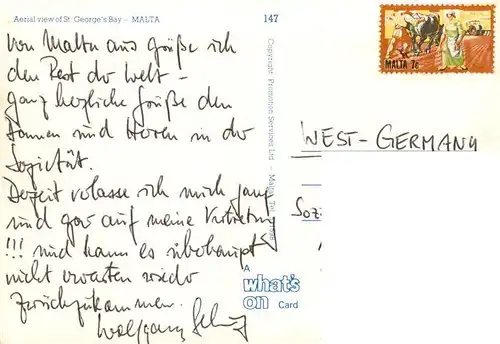 Aerial view of St. George's Bay – MALTA
147
Von Malta aus grüße ich
den Rest der Welt –
ganz herzliche Grüße den
Damen und Herren in der
Sozietät.
Derzeit verlasse ich mich ganz
und gar auf meine Vertretung
!!! und kann es überhaupt
nicht erwarten wieder
zurückzukommen.
Wolfgang
Copyright Promotion Services Ltd – Malta Tel.
A
what's
on Card
MALTA 7c
WEST-GERMANY
Soz